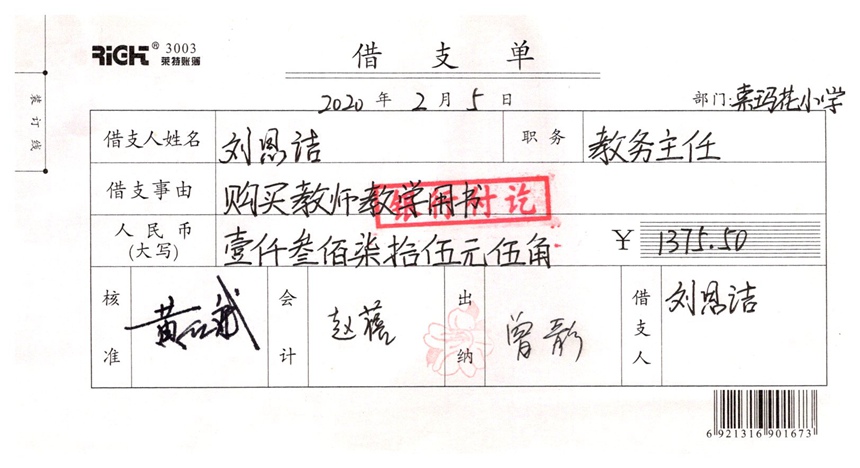 RiGHT® 3003
莱特账簿
借支单
2020年2月5日
部门:索玛花小学
装订线
借支人姓名 刘恩洁 职务 教务主任
借支事由 购买教师教学用书
银行付讫
人民币(大写) 壹仟叁佰柒拾伍元伍角 ¥ 1375.50
核准 会计 赵蓓 出纳 曾彩 借支人 刘恩洁
6 921316 901673